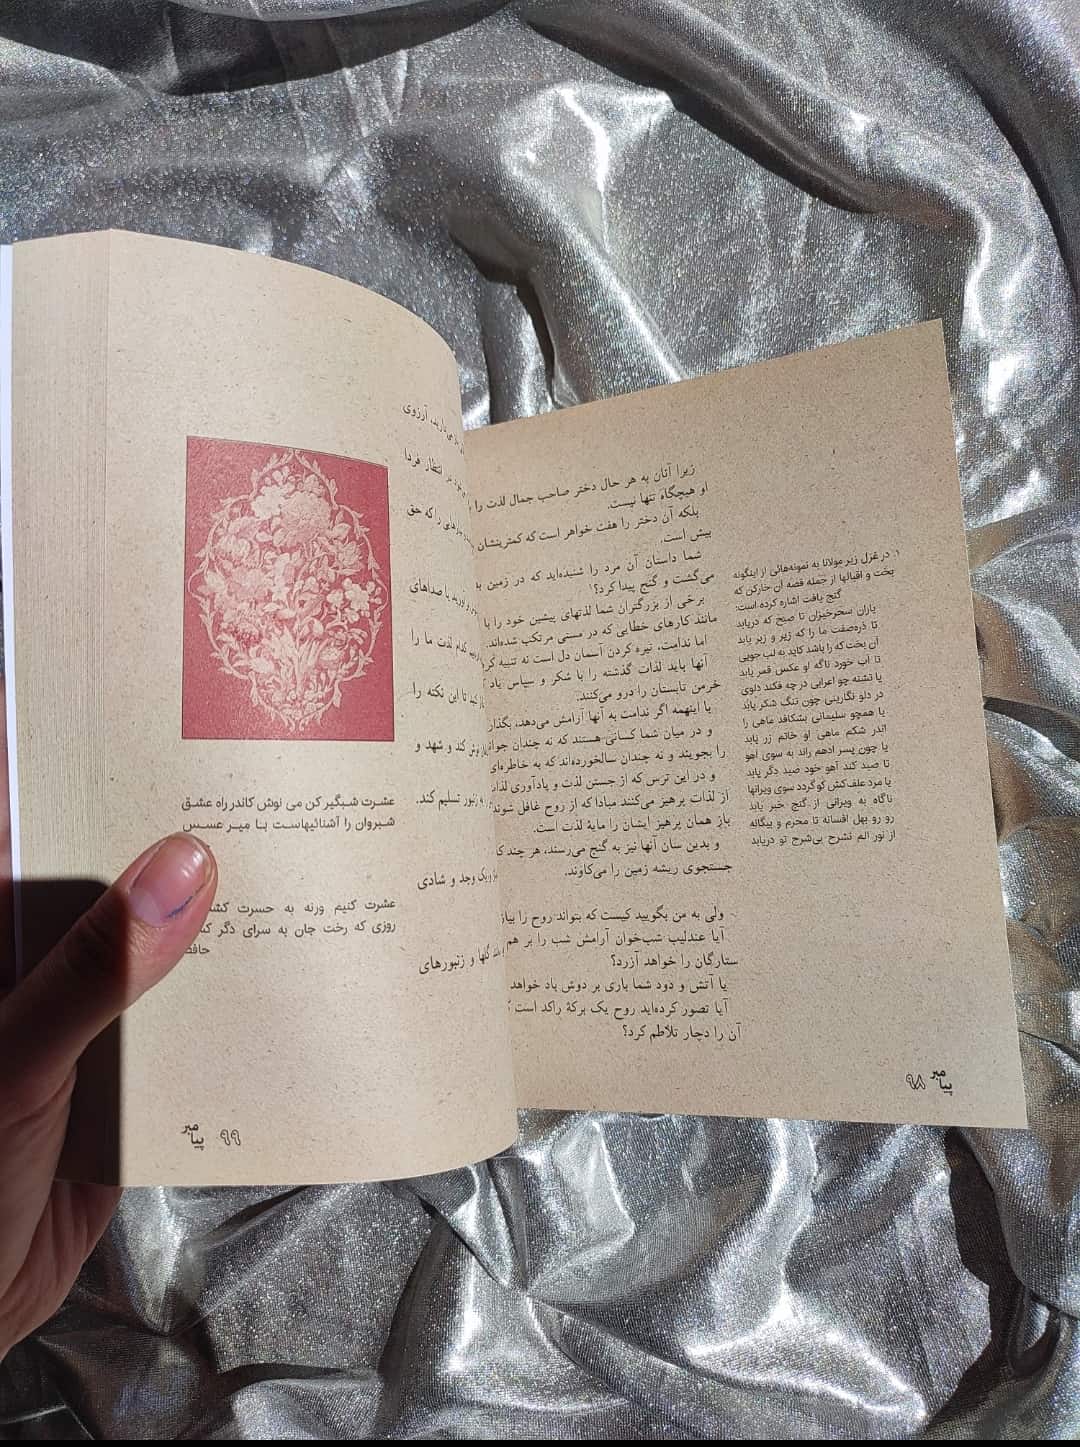 زیرا آنان به هر حال دختر صاحب جمال لذت را
او هیچگاه تنها نیست.
بلکه آن دختر را هفت خواهر است که کمترینشان
بیش است.
شما داستان آن مرد را شنیده‌اید که در زمین به
می‌گشت و گنج پیدا کرد؟
برخی از بزرگتران شما لذتهای پیشین خود را با
مانند کارهای خطایی که در مستی مرتکب شده‌اند.
اما ندامت، تیره کردن آسمان دل است نه تنبیه
آنها باید لذات گذشته را با شکر و سپاس یاد
خرمن تابستان را درو می‌کنند.
با اینهمه اگر ندامت به آنها آرامش می‌دهد، بگذار
و در میان شما کسانی هستند که نه چندان
را بجویند و نه چندان سالخورده‌اند که به خاطره‌ای
و در این ترس که از جستن لذت و یادآوری
از لذات پرهیز می‌کنند مبادا که از روح غافل شوند
باز همان پرهیز ایشان را مایهٔ لذت است.
و بدین سان آنها نیز به گنج می‌رسند، هر چند
جستجوی ریشه زمین را می‌کاوند.
ولی به من بگویید کیست که بتواند روح را
آیا عندلیب شب‌خوان آرامش شب را بر هم
ستارگان را خواهد آزرد؟
یا آتش و دود شما باری بر دوش باد خواهد
آیا تصور کرده‌اید روح یک برکهٔ راکد است
آن را دچار تلاطم کرد؟
۱. در غزل زیر مولانا به نمونه‌هائی از اینگونه
بخت و اقبالها از جمله قصه آن خارکن که
گنج یافت اشاره کرده است:
یاران سحرخیزان تا صبح که دریابد
تا ذره‌صفت ما را که زیر و زبر یابد
آن بخت که را باشد کاید به لب جویی
تا آب خورد ناگه او عکس قمر یابد
یا تشنه چو اعرابی در چه فکند دلوی
در دلو نگارینی چون تنگ شکر یابد
یا همچو سلیمانی بشکافد ماهی را
اندر شکم ماهی او خاتم زر یابد
یا چون پسر ادهم راند به سوی آهو
تا صید کند آهو خود صید دگر یابد
یا مرد علف‌کش کو گردد سوی ویرانها
ناگاه به ویرانی از گنج خبر یابد
رو رو بهل افسانه تا محرم و بیگانه
از نور الم نشرح بی‌شرح تو دریابد
پیامبر ۹۸
آرزوی
انتظار فردا
را که حق
صداهای
کدام لذت ما را
تا این نکته را
نوش کند و شهد و
زنبور تسلیم کند.
یک وجد و شادی
گلها و زنبورهای
عشرت شبگیر کن می نوش کاندر راه عشق
شبروان را آشنائیهاست با میر عسس
عشرت کنیم ورنه به حسرت
روزی که رخت جان به سرای دگر
حافظ
پیامبر ۹۹